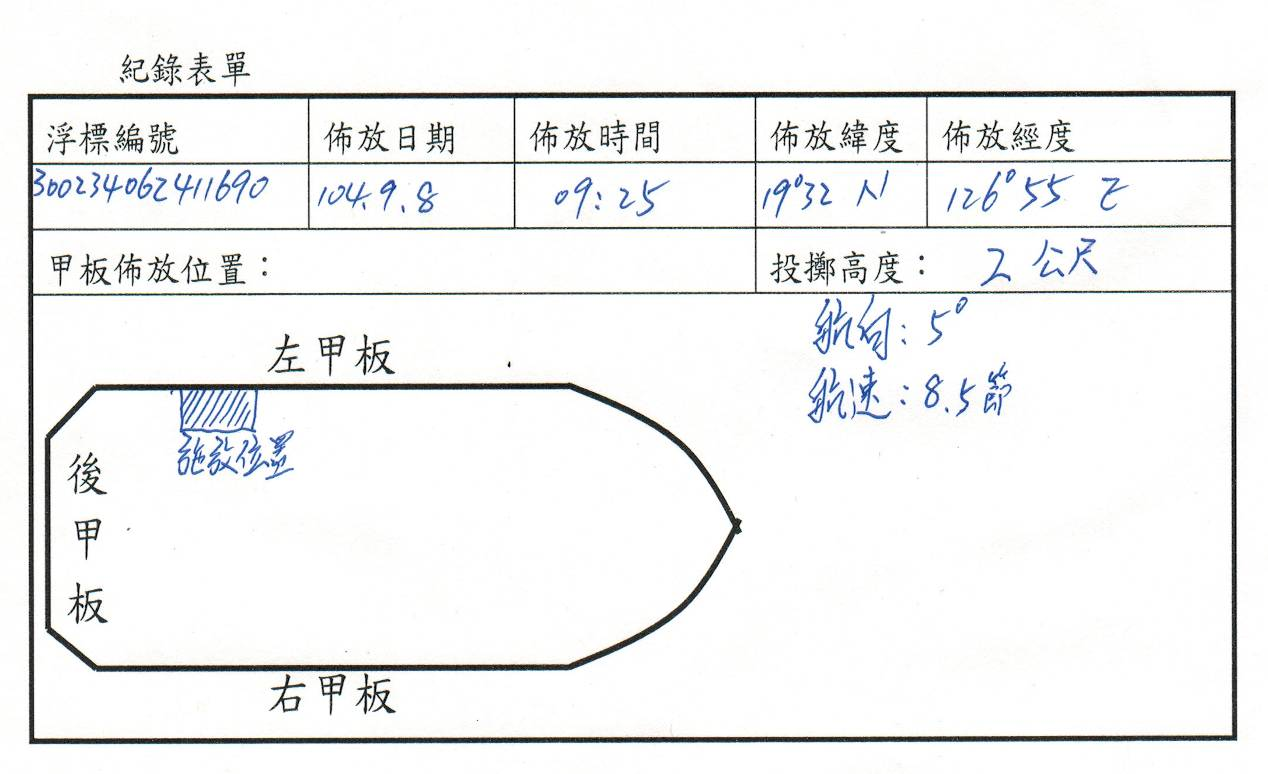 紀錄表單
浮標編號 佈放日期 佈放時間 佈放緯度 佈放經度
300234062411690 104.9.8 09:25 19°32 N 126°55 E
甲板佈放位置： 投擲高度： 2 公尺
航向：5°
左甲板
航速：8.5節
施放位置
後甲板
右甲板